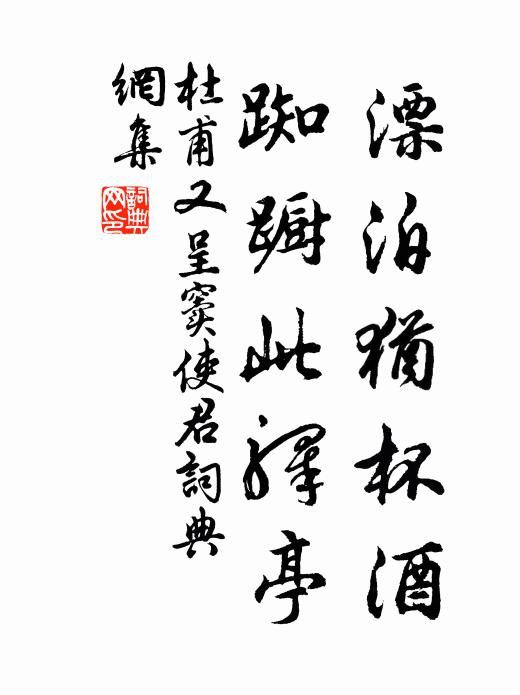 漂泊猶杯酒
踟躕此驛亭
杜甫又呈竇使君詞典
網集
詞典網印